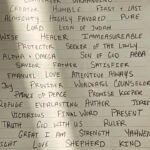 CREATOR HUMBLE FIRST + LAST
ALMIGHTY HIGHLY FAVORED PURE
LORD LION OF JUDAH
WISE HEALER IMMEASUREABLE
PROTECTOR SEEKER OF THE LOWLY
ALPHA + OMEGA SON OF GOD ABBA
SAVIOR FATHER SATISFIER
EMMANUEL LOVE ATTENTION ALWAYS
JOY PROVIDER WONDERFUL COUNSELOR
PRINCE OF PEACE PROMISE KEEPER
REFUGE EVERLASTING AUTHOR
VICTORIOUS FINAL WORD PRESENT
TRUTH GOD WITH US RULER
GREAT I AM STRENGTH YAHWEH
LIGHT LOVE SHEPHERD KIND